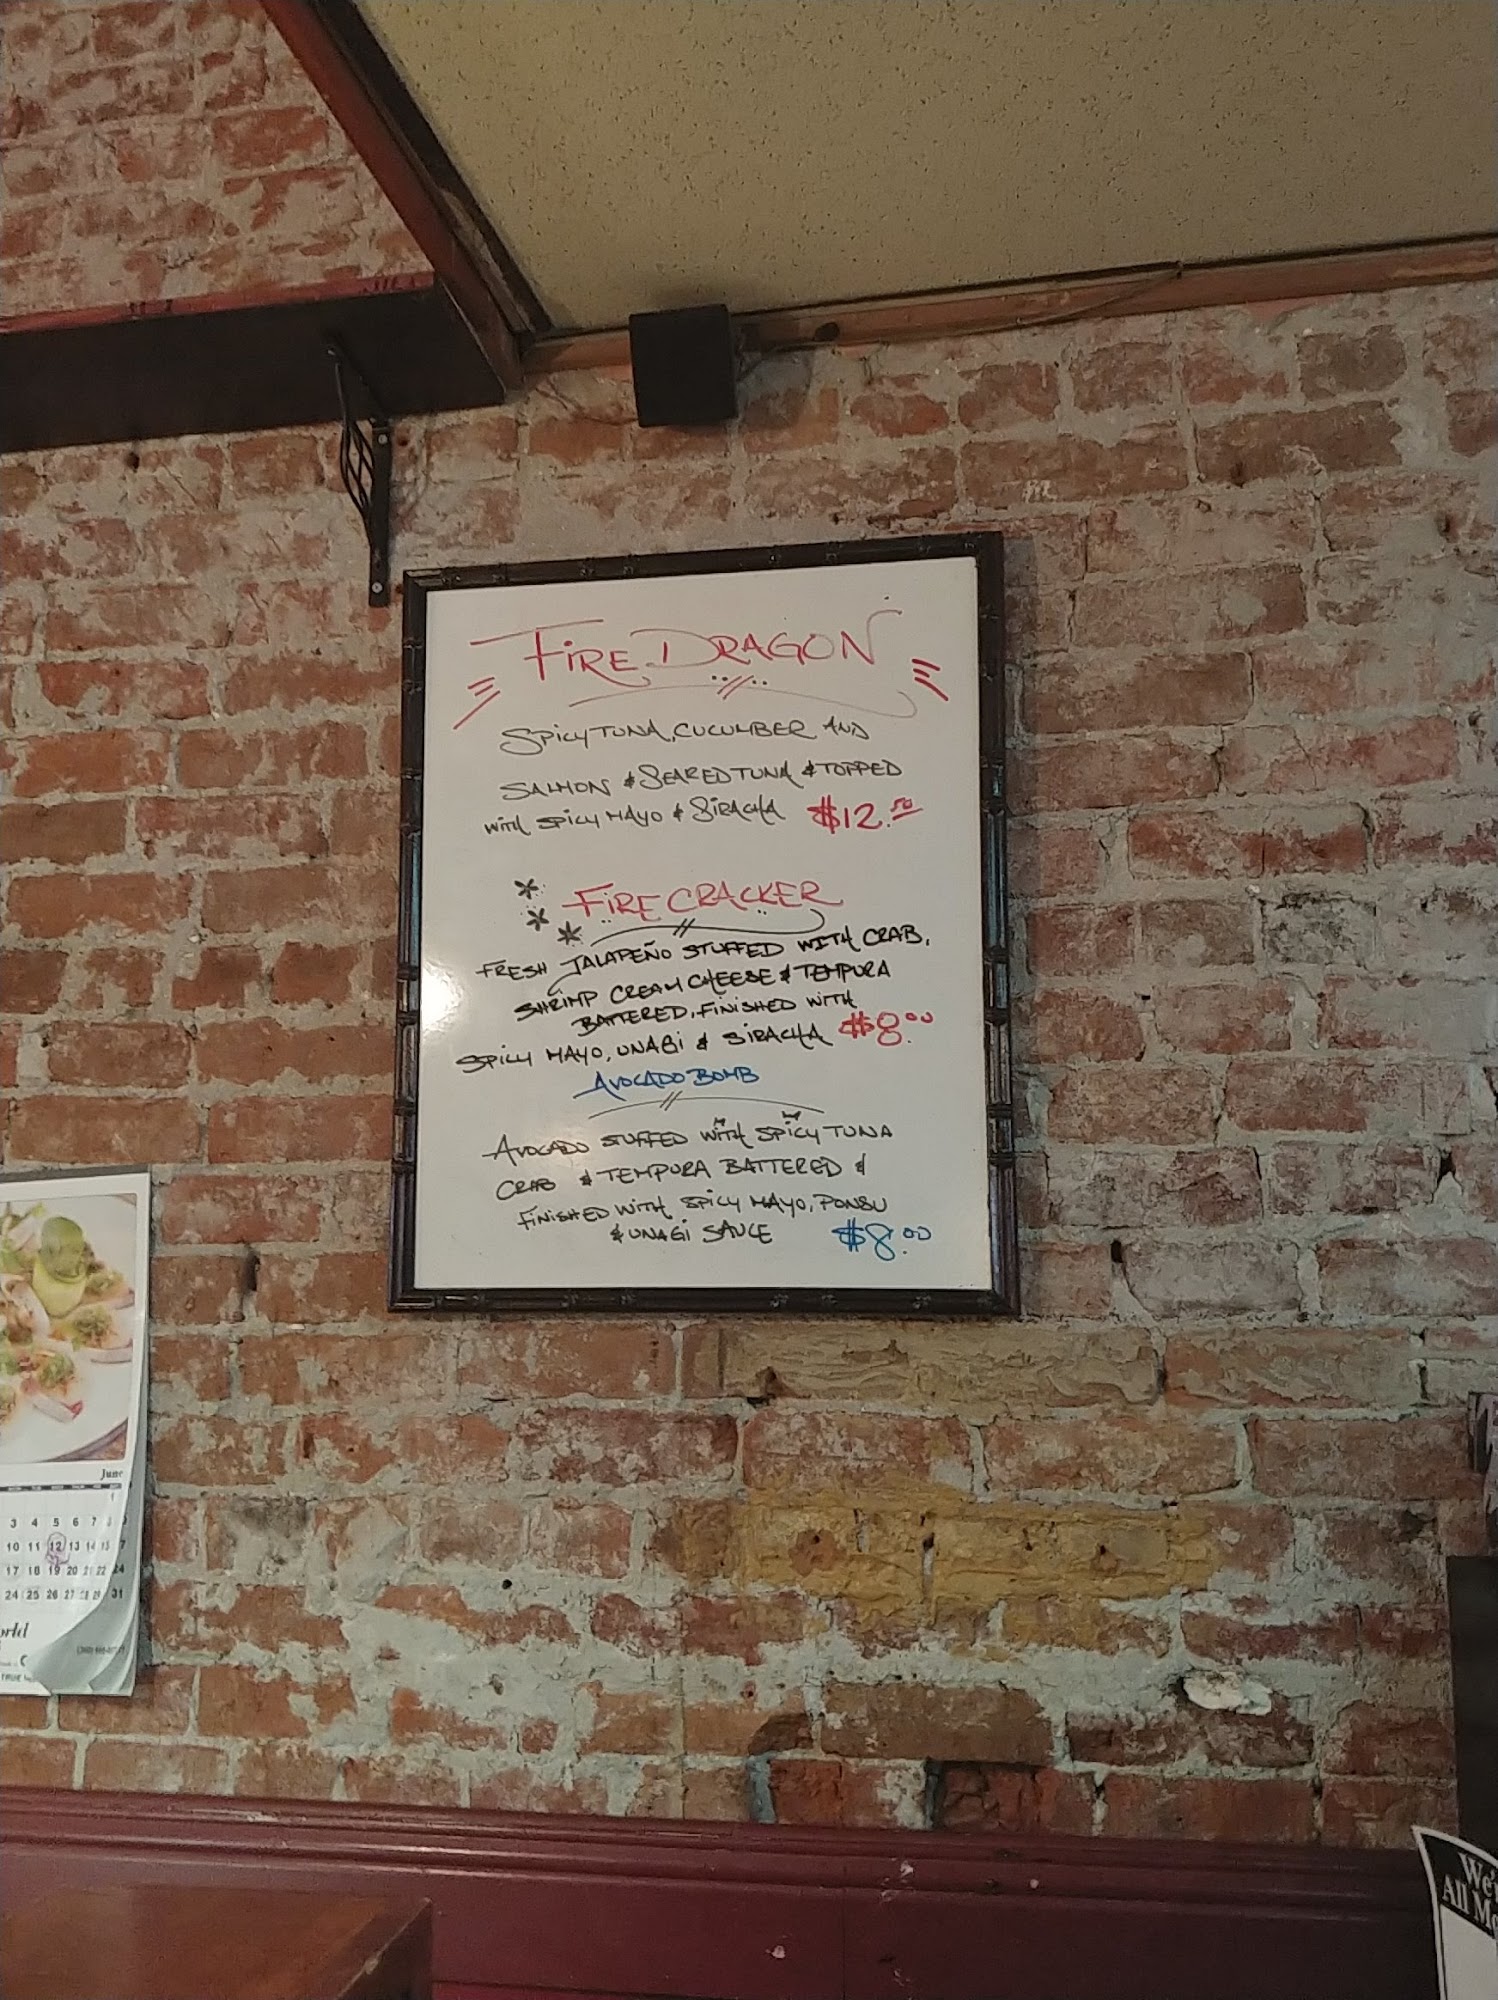 FIRE DRAGON
SPICY TUNA, CUCUMBER AND
SALMON & SEARED TUNA & TOPPED
WITH SPICY MAYO & SIRACHA $12.50
FIRECRACKER
FRESH JALAPEÑO STUFFED WITH CRAB,
SHRIMP CREAM CHEESE & TEMPURA
BATTERED, FINISHED WITH
SPICY MAYO, UNAGI & SIRACHA $8.00
AVOCADO BOMB
AVOCADO STUFFED WITH SPICY TUNA
CRAB & TEMPURA BATTERED &
FINISHED WITH SPICY MAYO, PONSU
& UNAGI SAUCE $8.00
June
1
3 4 5 6 7 8
10 11 12 13 14 15
17 18 19 20 21 22
24 25 26 27 28 29 31
orld
TRUE
We'
All Mo